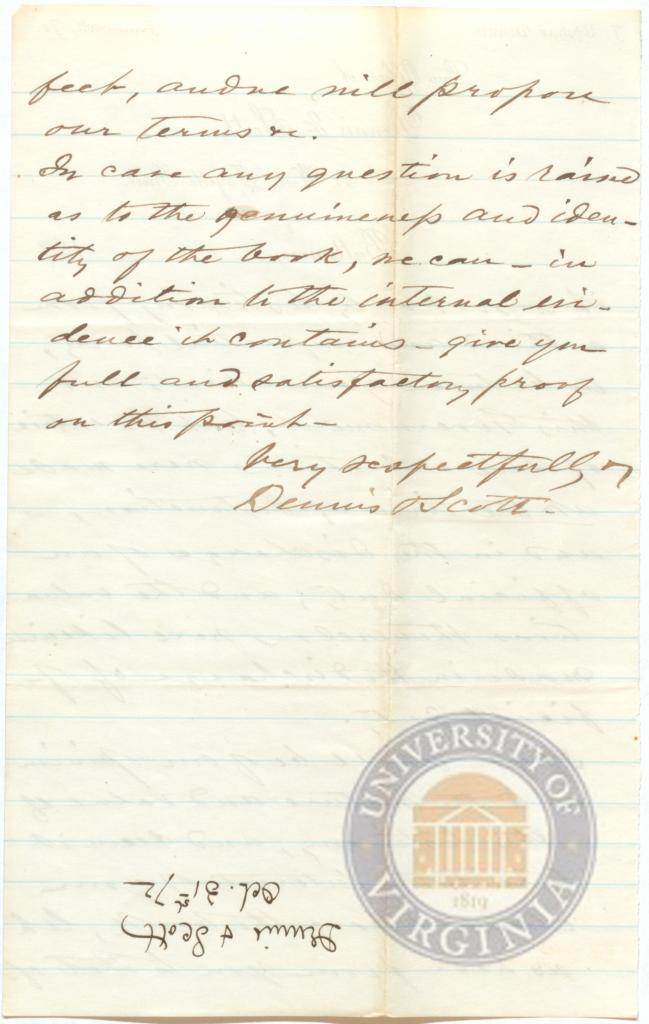 feet, and we will propose
our terms &c.
In case any question is raised
as to the genuineness and iden-
tity of the book, we can – in
addition to the internal evi-
dence it contains – give you
full and satisfactory proof
on this point –
Very respectfully &
Dennis & Scott.
Dennis & Scott
Oct. 21st 72
UNIVERSITY OF
VIRGINIA
1819